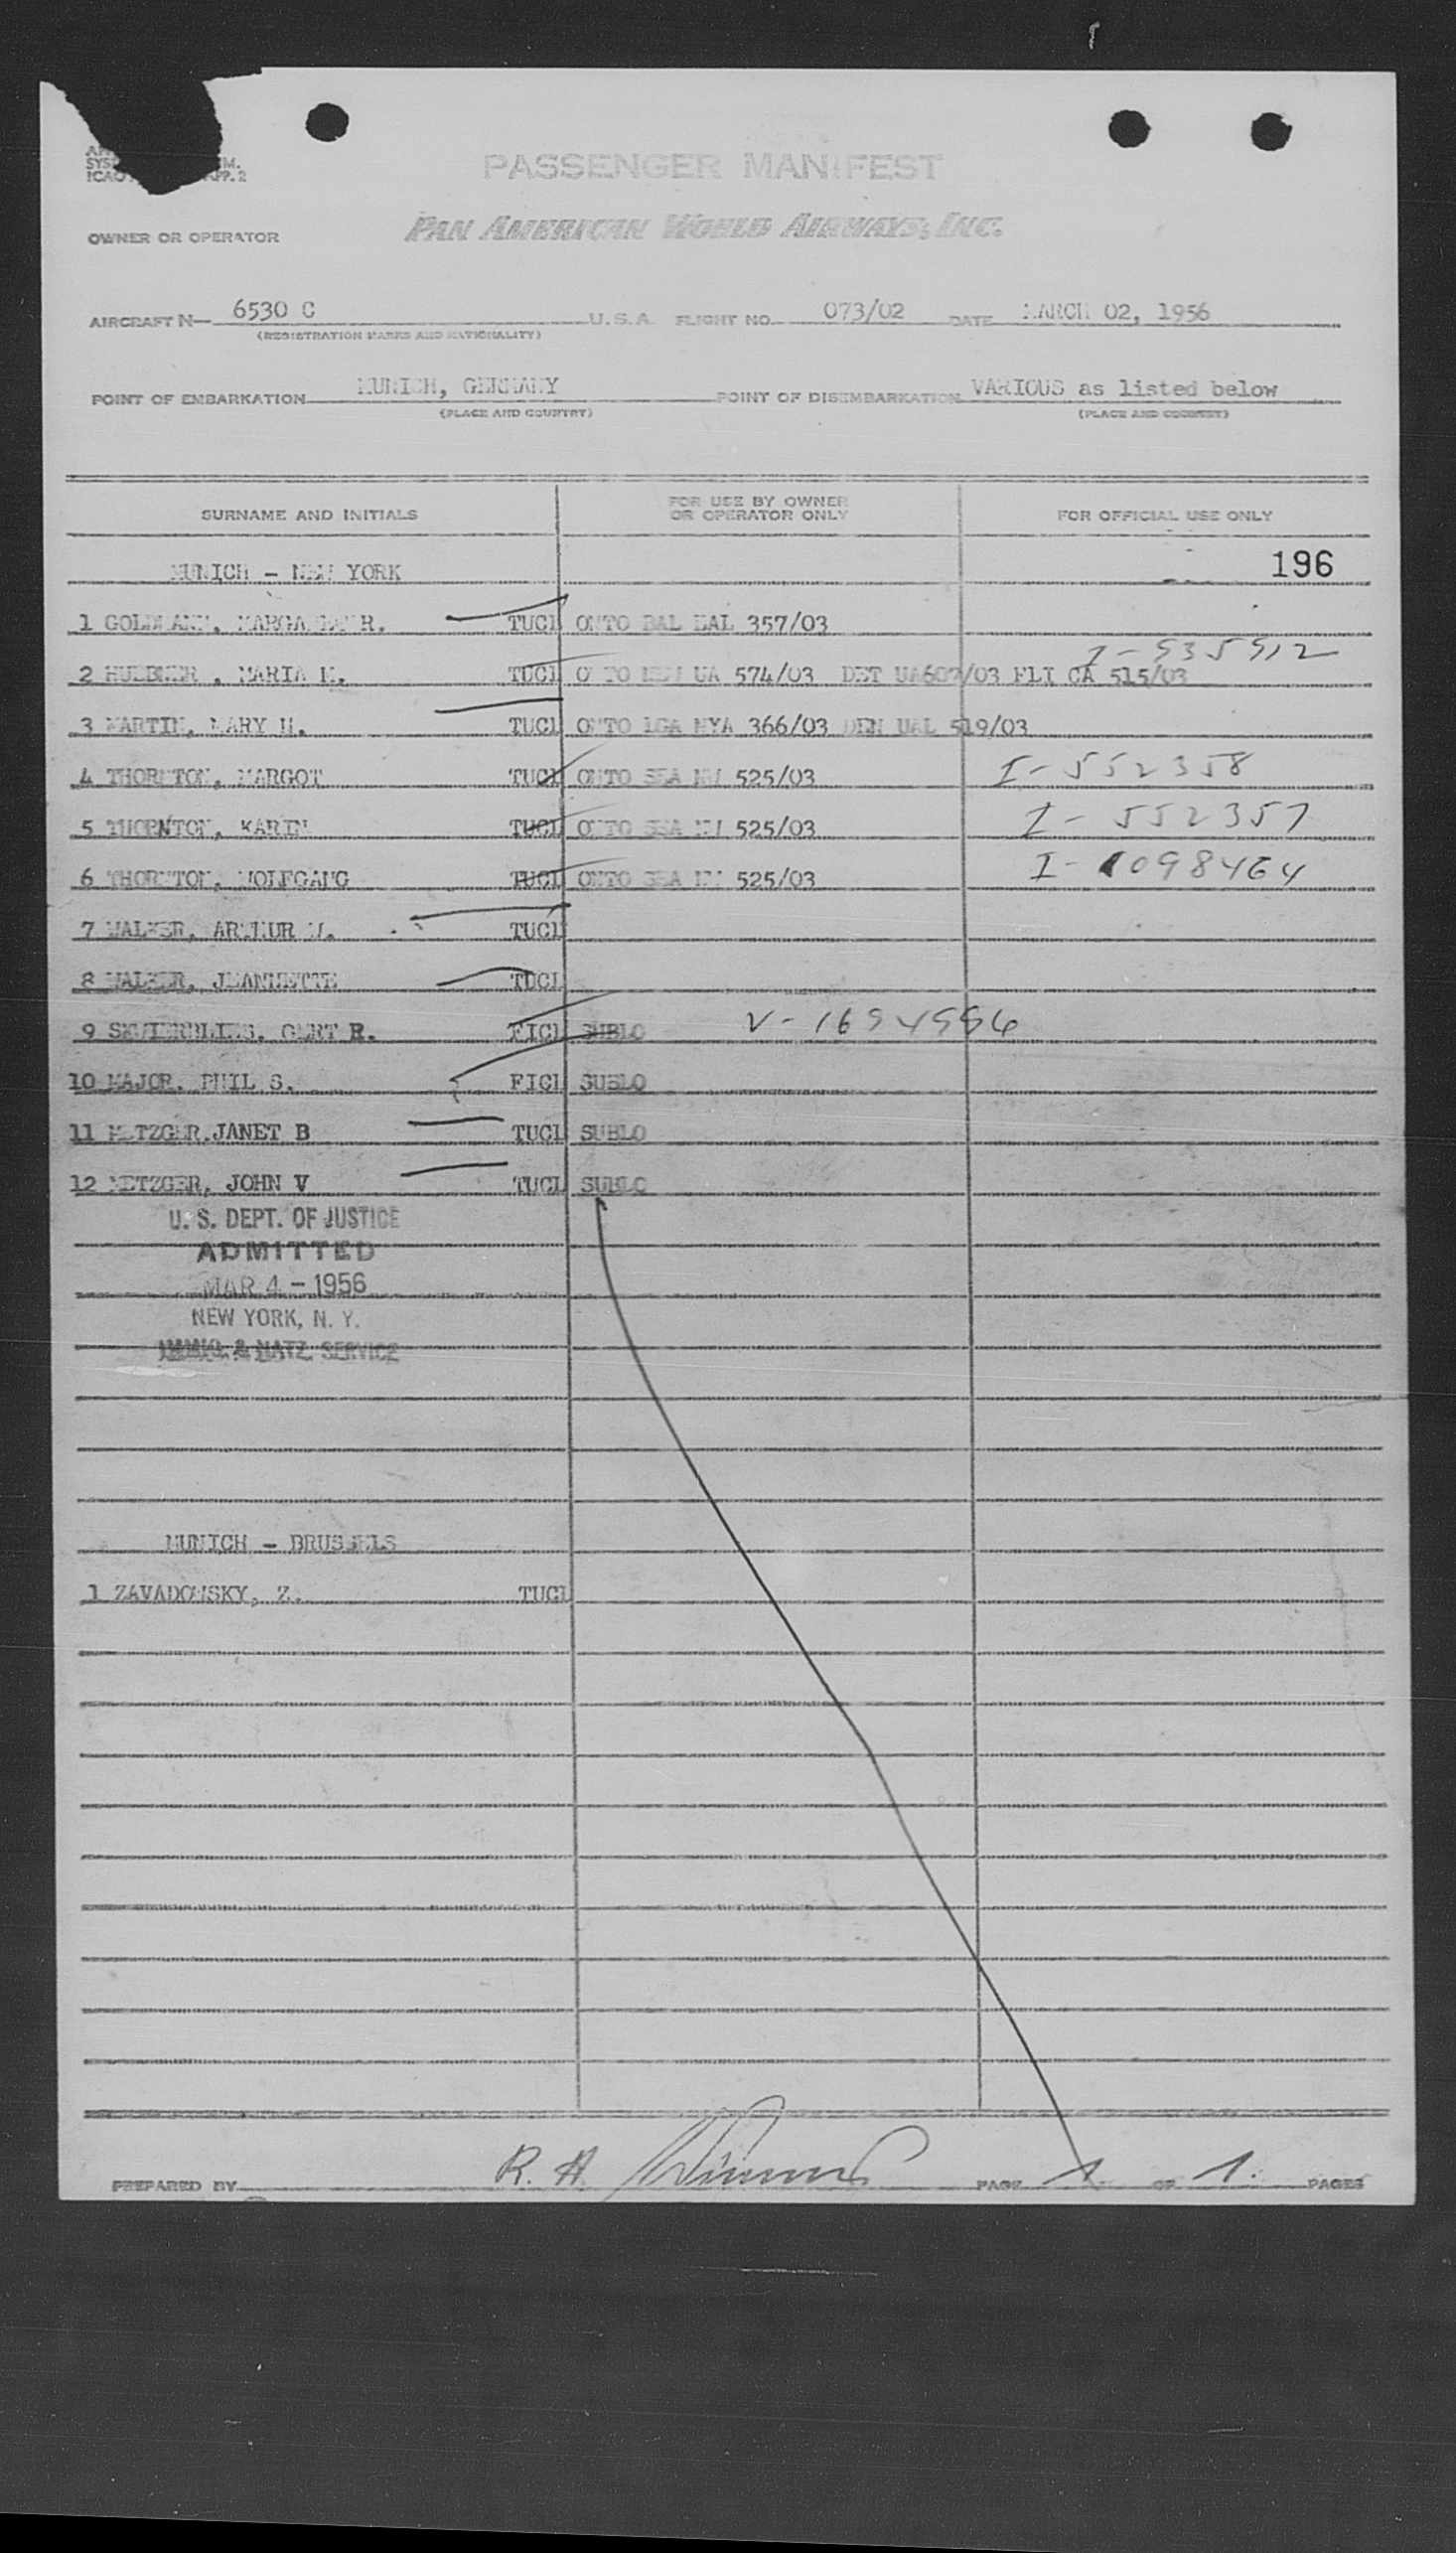 PASSENGER MANIFEST
PAN AMERICAN WORLD AIRWAYS, INC.
OWNER OR OPERATOR
AIRCRAFT N— 6530 C U.S.A. FLIGHT NO. 073/02 DATE MARCH 02, 1956
(REGISTRATION MARKS AND NATIONALITY)
POINT OF EMBARKATION MUNICH, GERMANY POINT OF DISEMBARKATION VARIOUS as listed below
(PLACE AND COUNTRY) (PLACE AND COUNTRY)
SURNAME AND INITIALS FOR USE BY OWNER OR OPERATOR ONLY FOR OFFICIAL USE ONLY
MUNICH - NEW YORK 196
1 R. TUCL ONTO BAL EAL 357/03
I-535912
2 MARIA TUCL ONTO UA 574/03 DET /03 FLI CA 515/03
3 MARTIN, MARY H. TUCL ONTO LGA NYA 366/03 DEN UAL 519/03
4 THORNTON, MARGOT TUCL ONTO SEA NW 525/03 I-552358
5 THORNTON, KARIN TUCL ONTO SEA NW 525/03 I-552357
6 THORNTON, WOLFGANG TUCL ONTO SEA NW 525/03 I-1098464
7 WALKER, ARTHUR W. TUCL
8 WALKER, JEANNETTE TUCL
9 GERT R. FICL SUBLO V-1654556
10 MAJOR, PHIL S. FICL SUBLO
11 METZGER, JANET B TUCL SUBLO
12 METZGER, JOHN V TUCL SUBLO
U. S. DEPT. OF JUSTICE
ADMITTED
MAR 4 - 1956
NEW YORK, N. Y.
IMMIG. & NATZ. SERVICE
MUNICH - BRUSSELS
1 ZAVADOWSKY, Z. TUCL
PREPARED BY R. H. PAGE 1 OF 1. PAGES